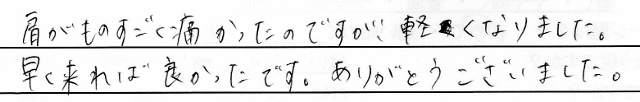 肩がものすごく痛かったのですが、軽くなりました。
早く来れば良かったです。ありがとうございました。